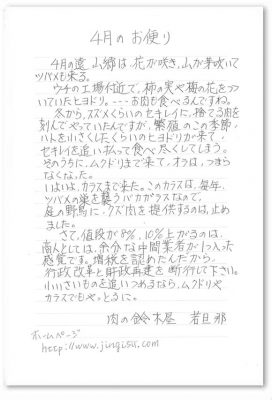 4月のお便り
4月の遠山郷は、花が咲き、山が芽吹いて
ツバメも来る。
ウチの工場付近で、柿の実や梅の花をつつ
いていたヒヨドリ。---お肉も食べるんですね。
冬から、スズメくらいのセキレイに、捨てる肉を
刻んでやっていたんですが、繁殖のこの季節、
ハトを小さくしたくらいのヒヨドリが来て、
セキレイを追い払って食べ尽くしてしまう。
そのうちに、ムクドリまで来て、オラは、つまら
なくなった。
いよいよ、カラスまで来た。このカラスは、毎年、
ツバメの巣を襲うバカガラスなので、
庭の野鳥に、クズ肉を提供するのは、止め
ました。
さて、値段が8%、10%上がるのは、
商人としては、余分な中間業者が1つ入った
感覚です。増税を認めたんだから、
行政改革と財政再建を断行して下さい。
小いさいものを追いつめるなら、ムクドリや
カラスでもやっとるに。
肉の鈴木屋 若旦那
ホームページ
http://www.jingisu.com